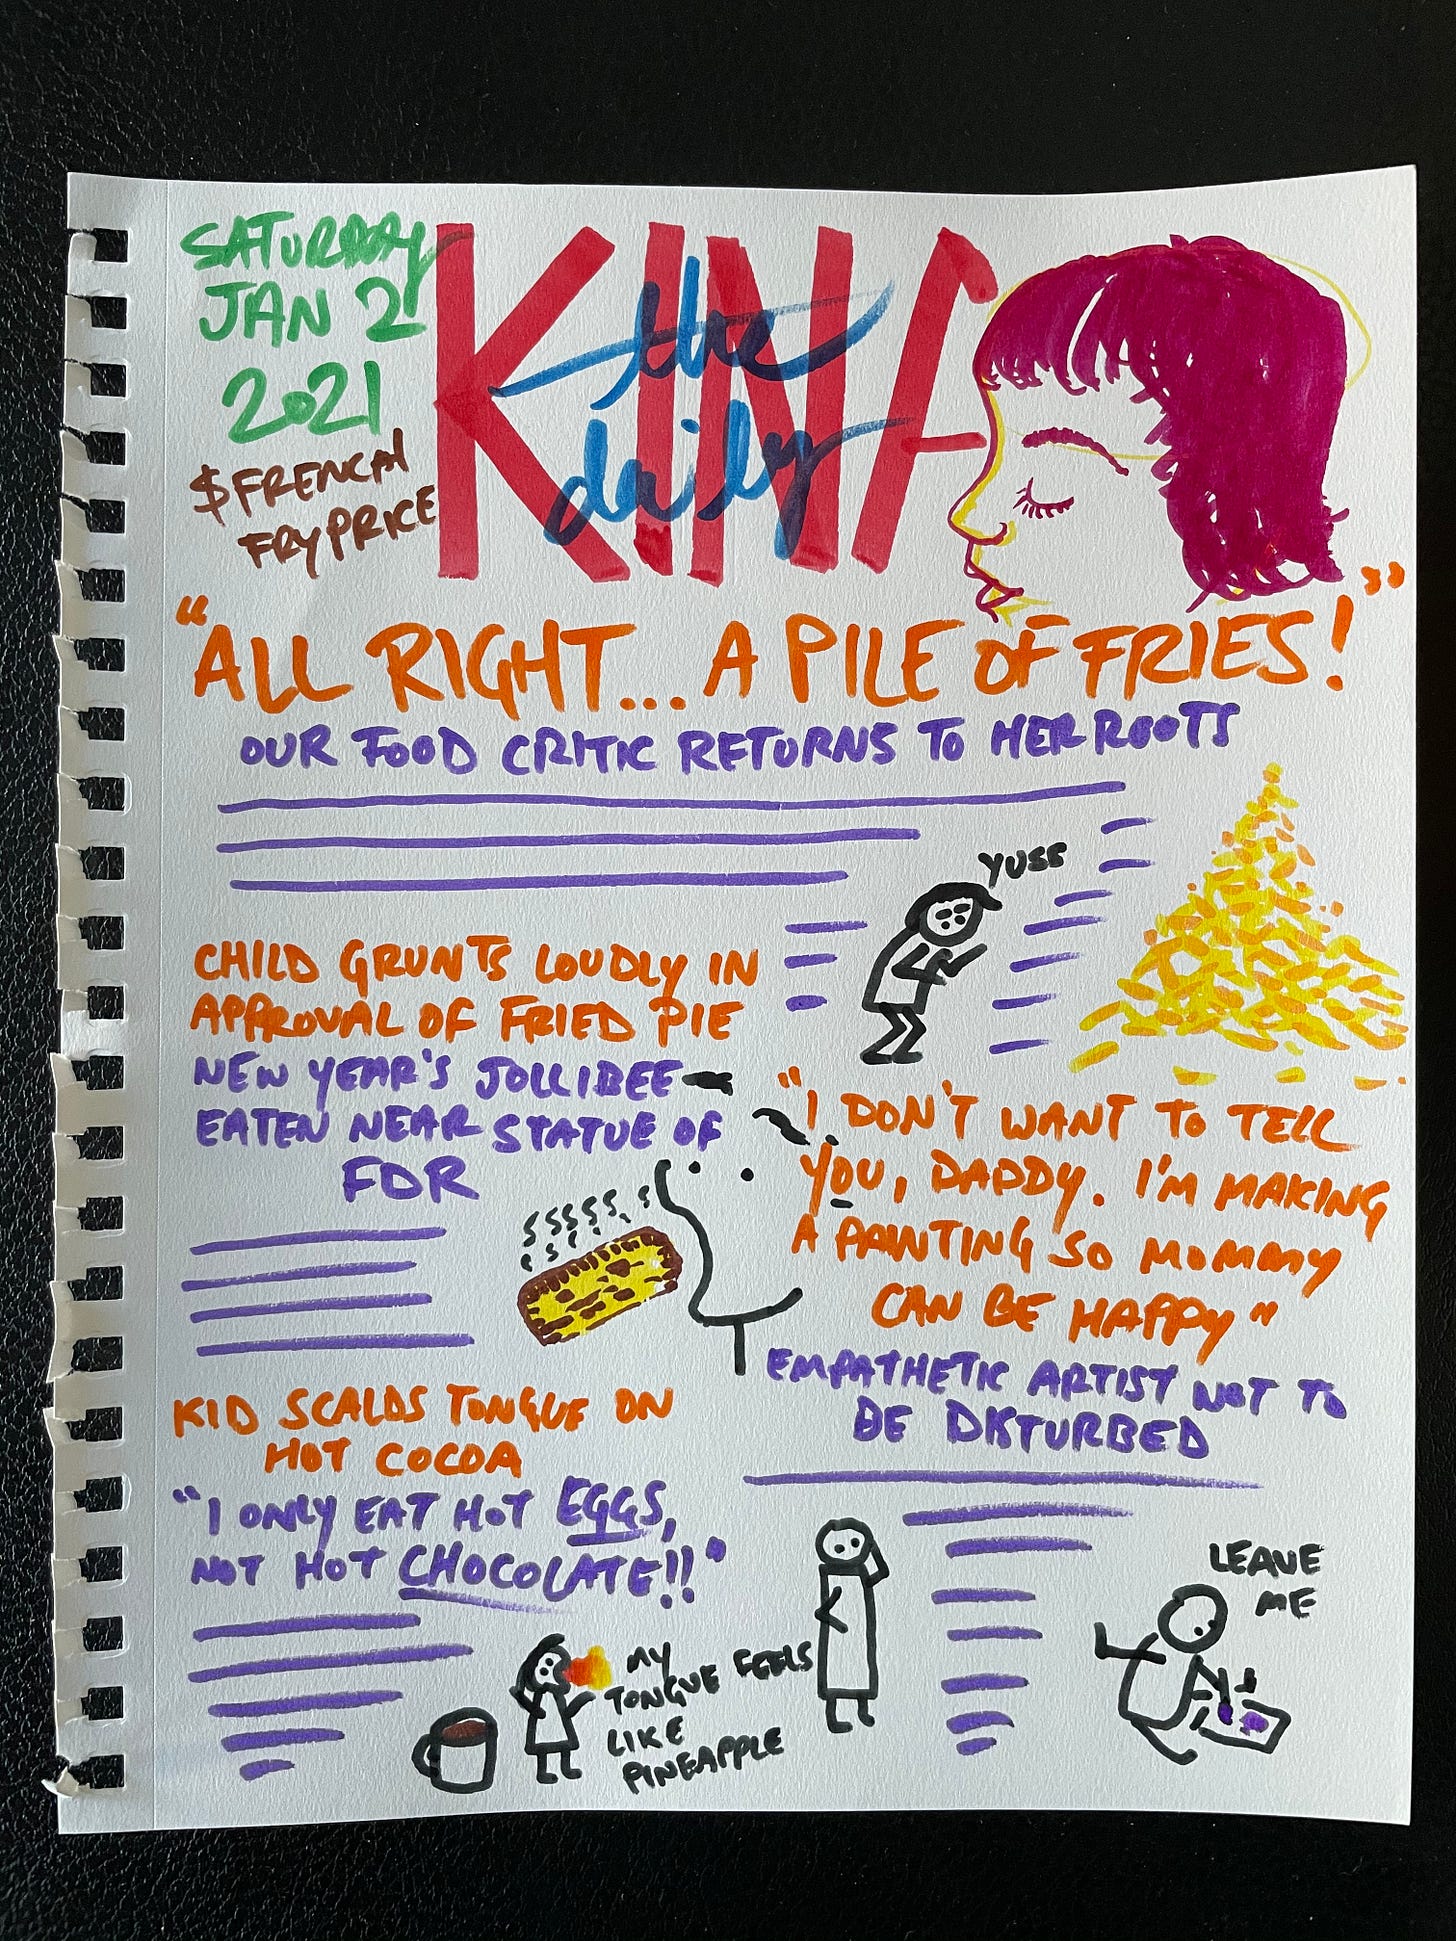 SATURDAY
JAN 2
2021
$FRENCH
FRY PRICE
the
daily
KINA
"ALL RIGHT... A PILE OF FRIES!"
OUR FOOD CRITIC RETURNS TO HER ROOTS
YUSS
CHILD GRUNTS LOUDLY IN
APPROVAL OF FRIED PIE
NEW YEAR'S JOLLIBEE
EATEN NEAR STATUE OF
FDR
"I DON'T WANT TO TELL
YOU, DADDY. I'M MAKING
A PAINTING SO MOMMY
CAN BE HAPPY"
EMPATHETIC ARTIST NOT TO
BE DISTURBED
LEAVE
ME
KID SCALDS TONGUE ON
HOT COCOA
"I ONLY EAT HOT EGGS,
NOT HOT CHOCOLATE!!"
MY
TONGUE FEELS
LIKE
PINEAPPLE